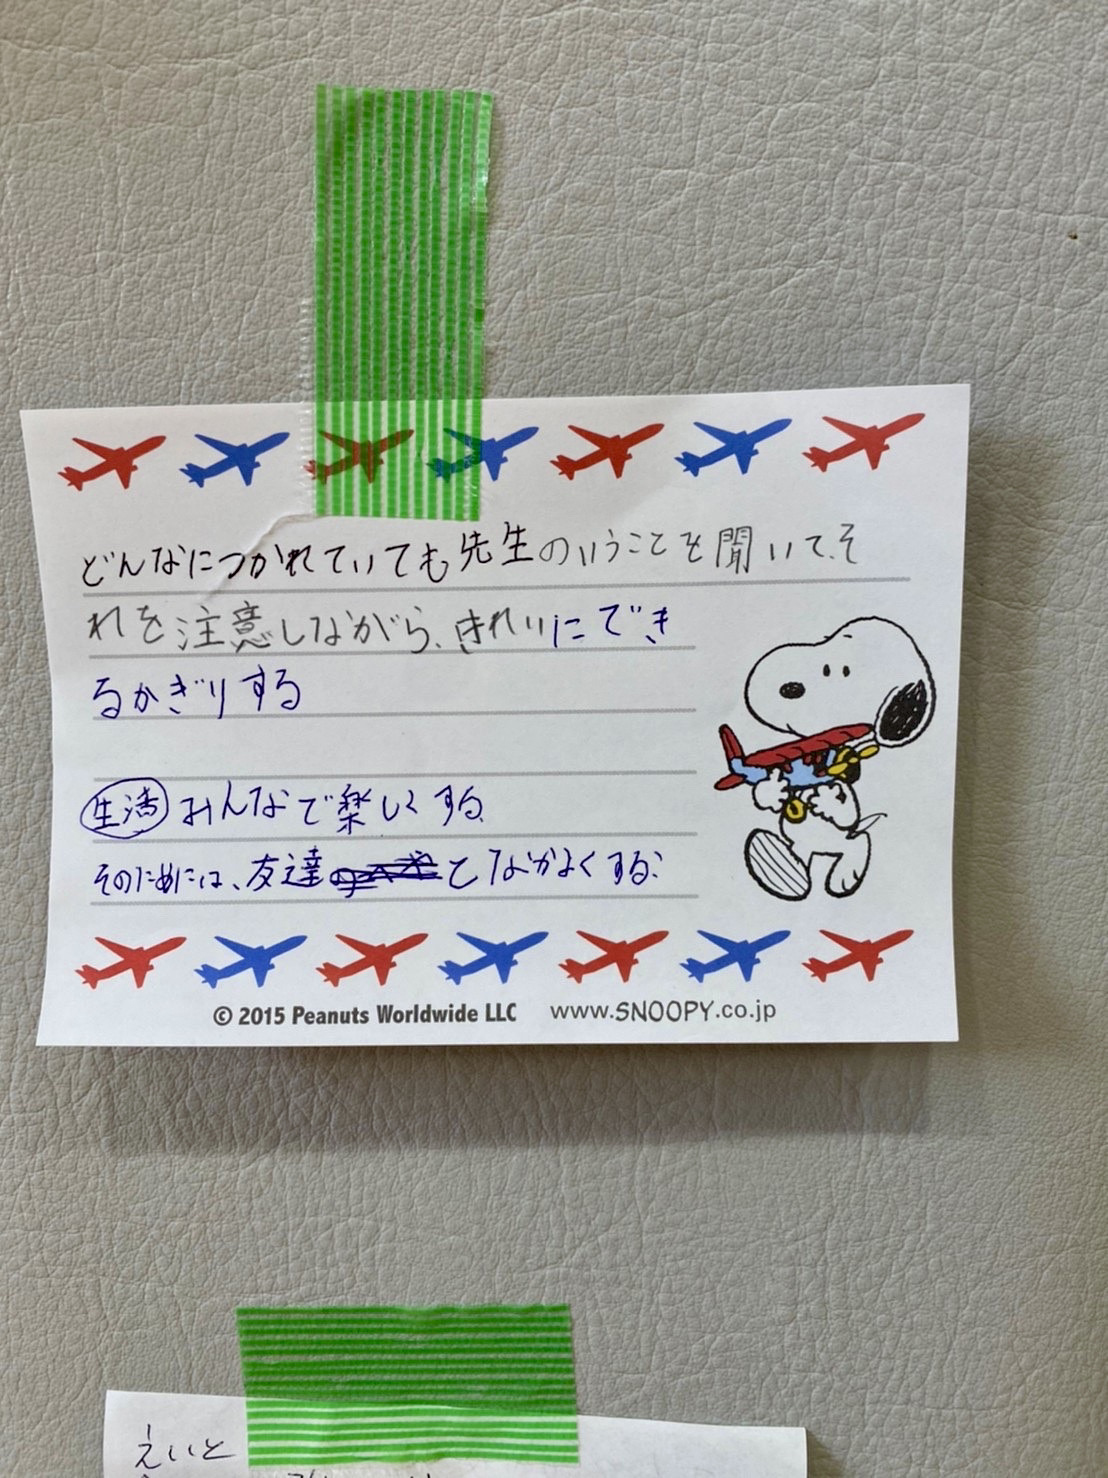 どんなにつかれていても先生のいうことを聞いて、そ
れを注意しながら、きれいにでき
るかぎりする
生活 みんなで楽しくする。
そのためには、友達となかよくする。
© 2015 Peanuts Worldwide LLC www.SNOOPY.co.jp
えいと